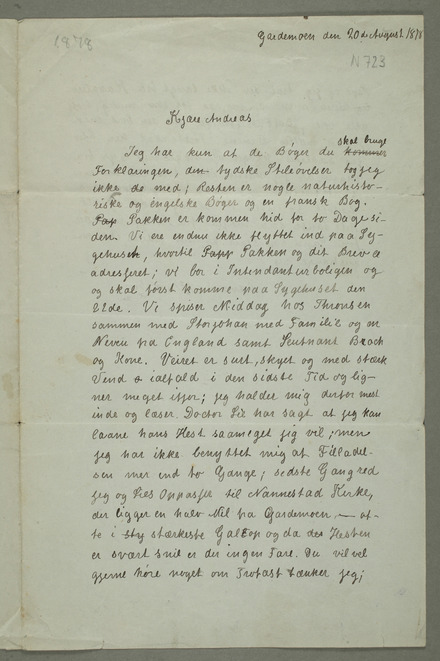 1878
Gardemoen den 20de August 1878
N 723
Kjære Andreas
skal bruge
Jeg har kun at de Bøger du kommer
Forklaringen, den tydske Stileøvelser tog jeg
ikke de med; Resten er nogle naturhisto-
riske og engelske Bøger og en fransk Bog.
Pap Pakken er kommen hid for to Dage si-
den. Vi ere endnu ikke flyttet ind paa Sy-
gehuset, hvortil Papp Pakken og dit Brev a
adresseret; vi bor i Intendanturboligen og
og skal først komme paa Sygehuset den
Vi spiser Middag hos Thronsen
sammen med Storjohan med Familie og en
Neveu fra England samt Leutnant Brach
og Kone. Veiret er surt, skyet og med stærk
Vend o ialfald i den sidste Tid og lig-
ner meget ifjor; jeg holder mig derfor mest
inde og læser. Doctor har sagt at jeg kan
laane hans Hest saameget jeg vil; men
jeg har ikke benyttet mig af Tillade-
sen mer end to Gange; sidste Gang red
jeg og Oppasser til Nannestad Kirke,
der ligger en halv Mil fra Gardemoen — of-
te i sty stærkeste Galop og da des Hesten
er svært snil er der ingen Fare. Du vil vel
gjerne høre noget om Trofast tænker jeg;